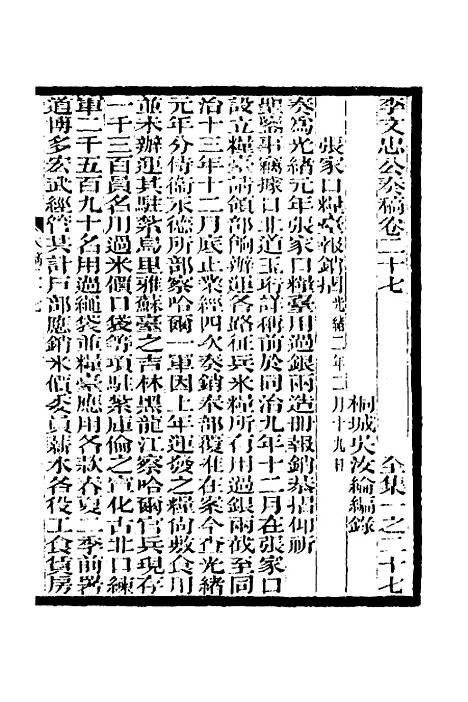 李文忠公奏稿卷二十七
全集一之二十七
桐城吳汝綸編錄
張家口糧臺報銷摺光緒二年二月十九日
奏為光緒元年張家口糧臺用過銀兩造冊報銷恭摺仰祈
聖鑒事竊據口北道玉珩詳稱前於同治九年十二月在張家口
設立糧臺請領部餉辦運各路征兵米糧所有用過銀兩截至同
治十三年十二月底止業經四次奏銷奉部覆准在案今查光緒
元年分侍衛永德所部察哈爾一軍因上年運發之糧尚敷食用
並未辦運其駐紮烏里雅蘇臺之吉林黑龍江察哈爾官兵現存
一千三百員名川過米價口袋等項駐紮庫倫之宣化古北口練
軍二千五百九十名用過繩袋並糧臺應用各款春夏二季前署
道博多宏武經管共計戶部應銷米價委員薪水各役工食賃房